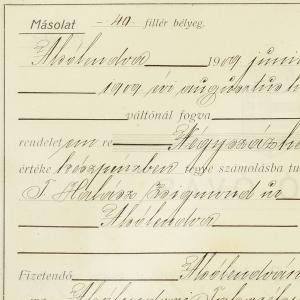 Másolat - 40 fillér bélyeg.
Alsólendva 1909 juni
1909 évi augusztus h
váltónál fogva
rendelet em re Négyszázhe
értéke készpénzben tegye számolásba tu
T. Halász Zsigmond úr
Alsólendva
Fizetendő Alsólendván
Alsólendvai